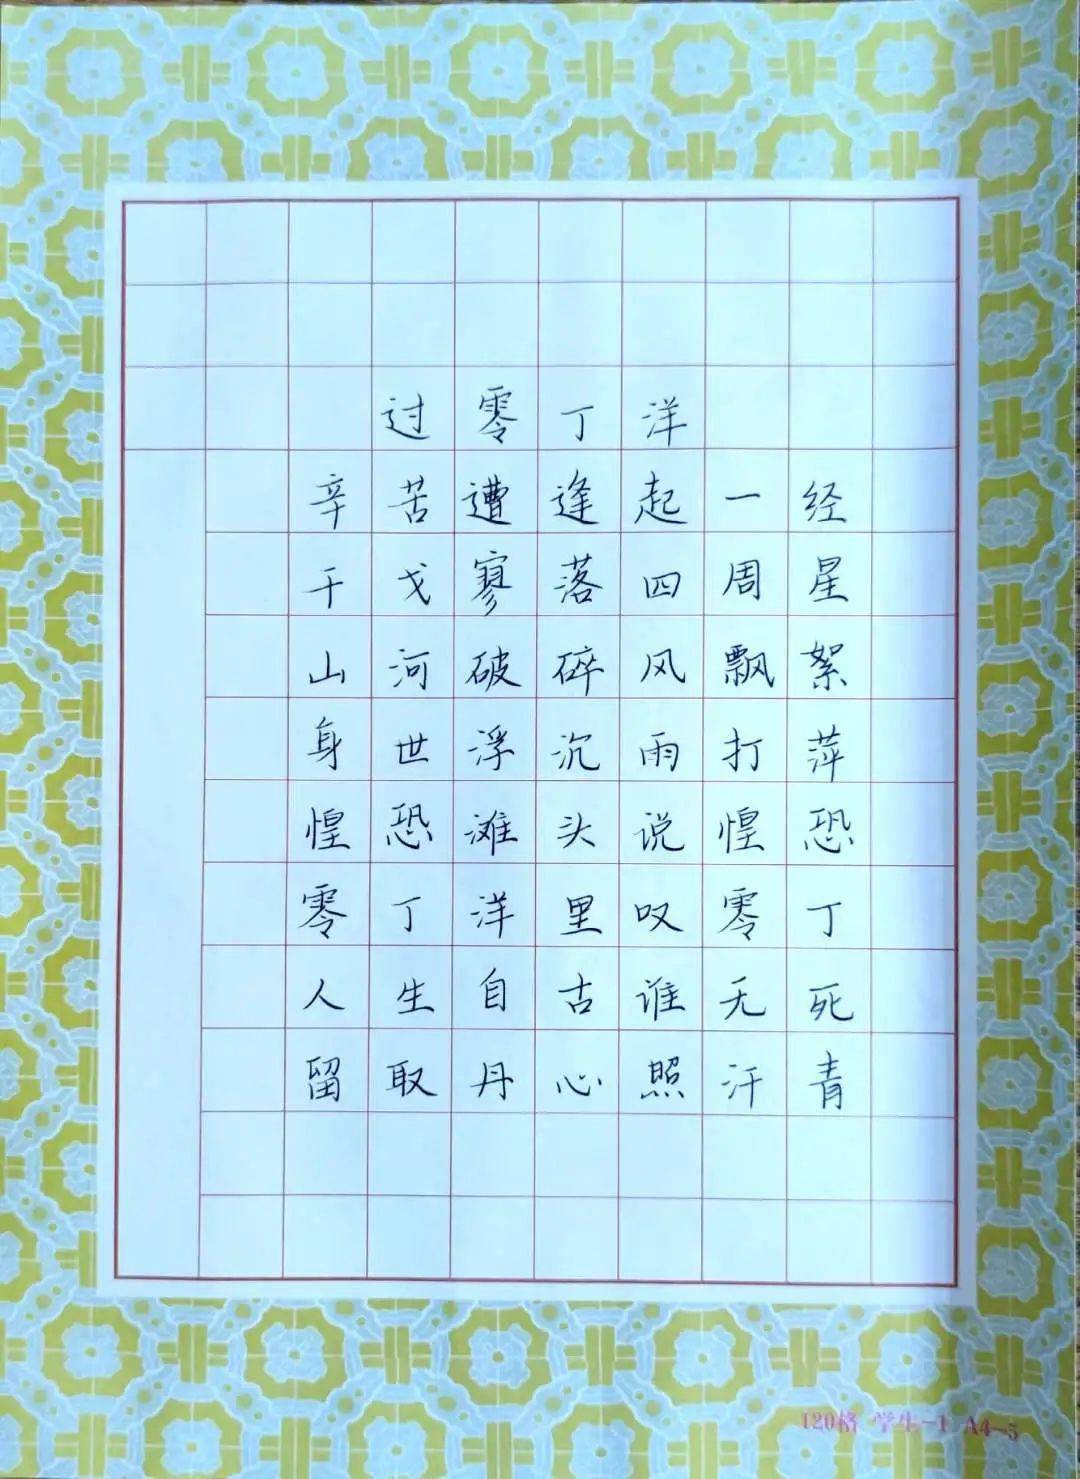 过零丁洋
辛苦遭逢起一经
干戈寥落四周星
山河破碎风飘絮
身世浮沉雨打萍
惶恐滩头说惶恐
零丁洋里叹零丁
人生自古谁无死
留取丹心照汗青
120格 学生-1 A4-5